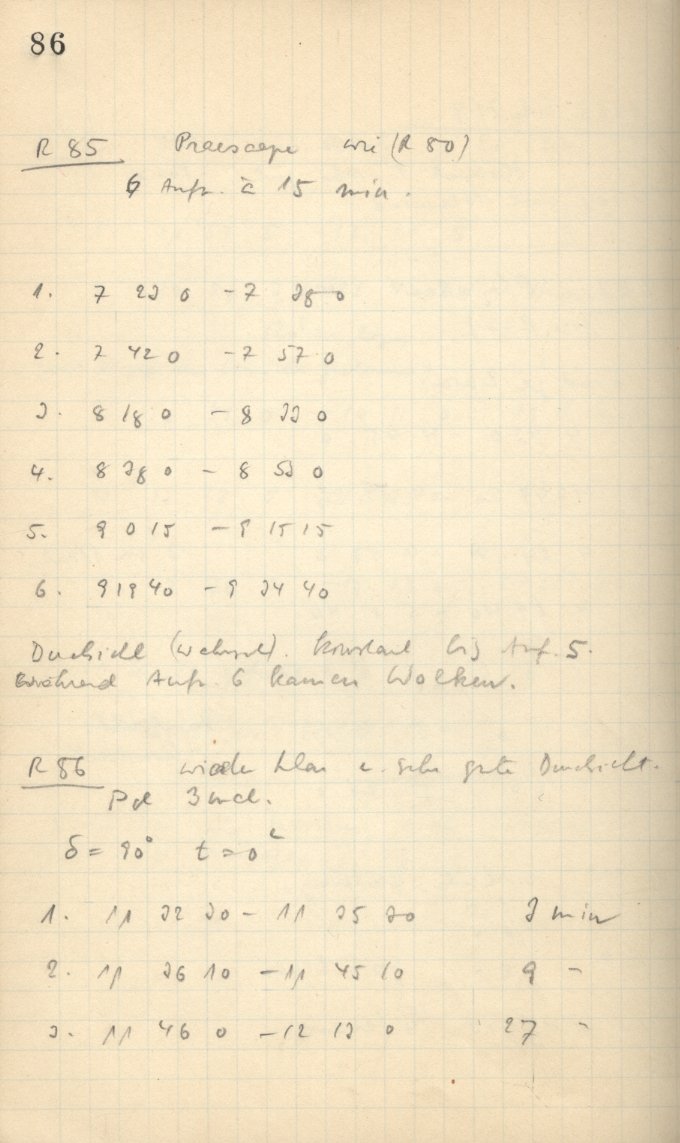 86
R 85 Praesepe wie (R 80)
6 Aufn. à 15 min.
1. 7 23 0 - 7 38 0
2. 7 42 0 - 7 57 0
3. 8 18 0 - 8 33 0
4. 8 38 0 - 8 53 0
5. 9 0 15 - 9 15 15
6. 9 19 40 - 9 34 40
Durchsicht konstant bis Aufn. 5.
während Aufn. 6 kamen Wolken.
R 86 wieder klar u. sehr gute Durchsicht.
Pol 3 mal.
δ = 90° t = 0ʰ
1. 11 32 30 - 11 35 30 3 min
2. 11 36 10 - 11 45 10 9 -
3. 11 46 0 - 12 13 0 27 -